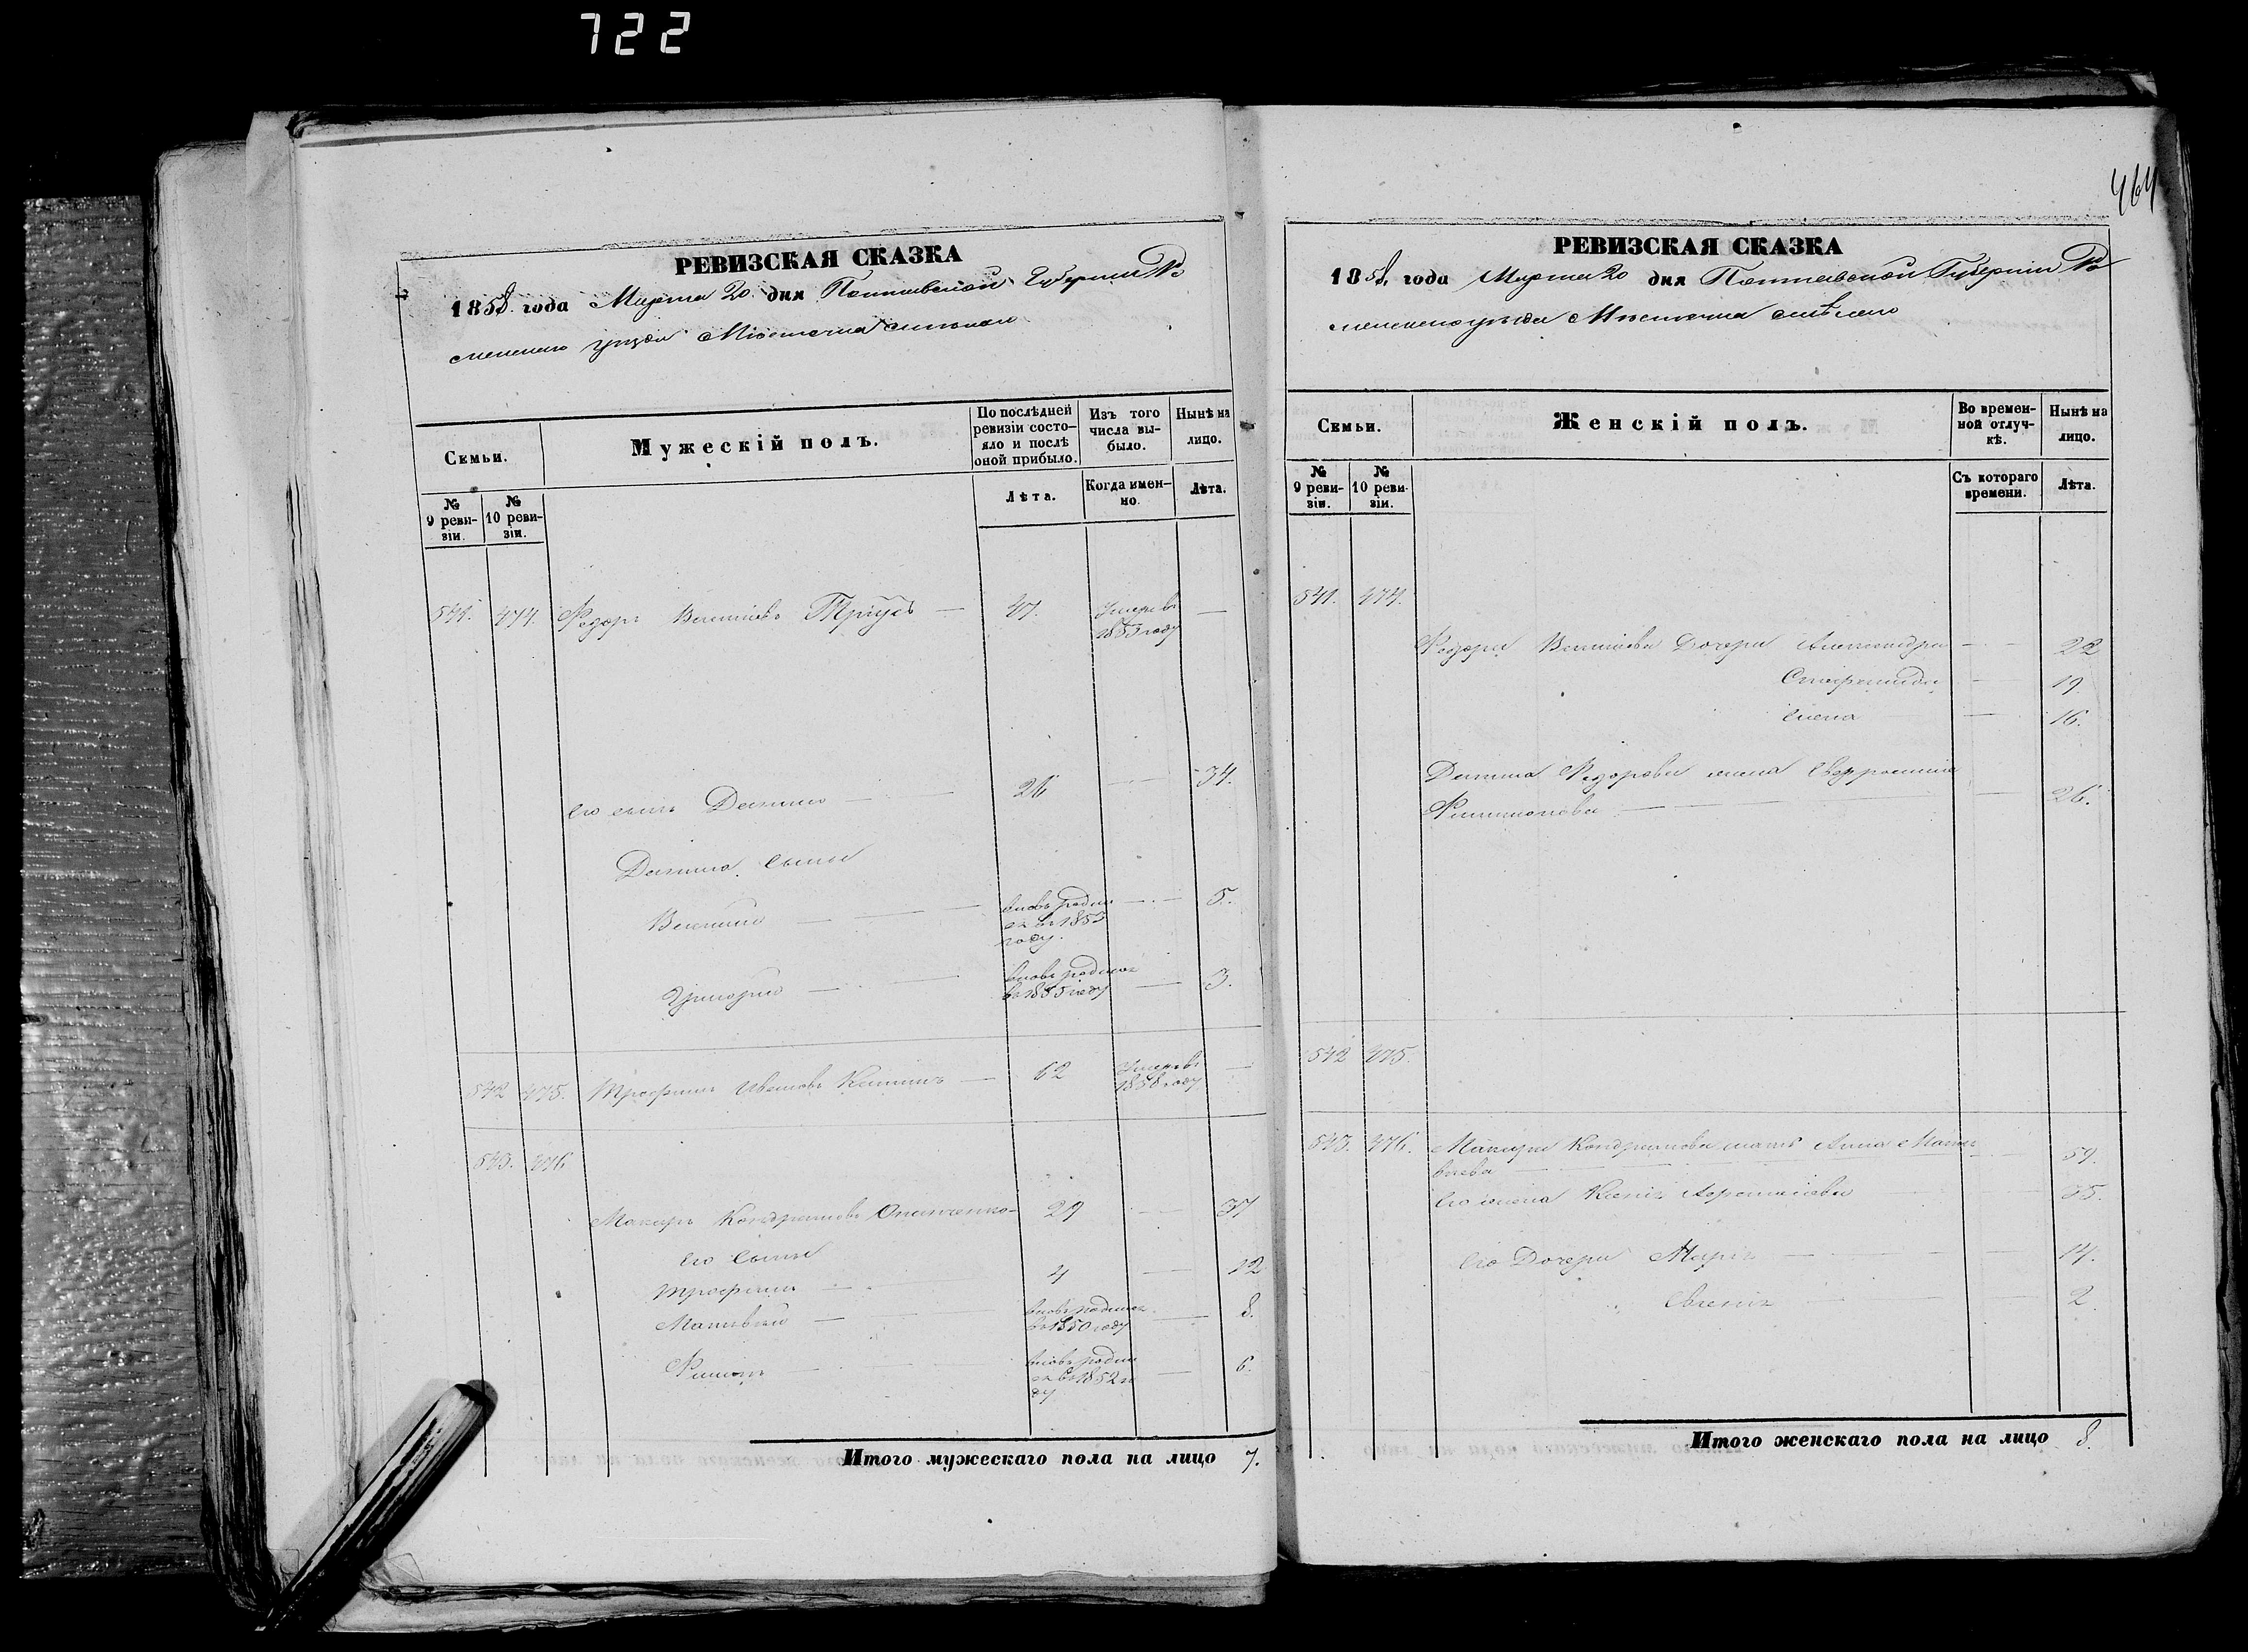 722
464
РЕВИЗСКАЯ СКАЗКА
1858 года Марта 20 дня Полтавской Губерніи Ро
менскаго уѣзда Мѣстечка Смѣлаго
Семьи.
Мужескій полъ.
По послѣдней ревизіи состо-яло и послѣ оной прибыло.
Изъ того числа вы-было.
Нынѣ на лицо.
№ 9 реви-зіи.
№ 10 реви-зіи.
Лѣта.
Когда имен-но.
Лѣта.
541. 474. Федоръ Даниловъ Тріусъ — 47. Умеръ въ 1853 году —
Его сынъ Данило — 26 — 34.
Данила сыны
Василій — вновь родил ся въ 1853 году. — 5.
Григорій — вновь родился въ 1855 году — 3.
542 475. Трофимъ Ивановъ — 62 Умеръ въ 1858 году —
543. 476
Макаръ Кондратовъ 29 — 37
Его сыны
Трофимъ — 4 — 12
Матвѣй — вновь родился въ 1850 году — 8.
Филипъ — вновь родил ся въ 1852 го ду — 6.
Итого мужескаго пола на лицо 7.
РЕВИЗСКАЯ СКАЗКА
1858 года Марта 20 дня Полтавской Губерніи Ро
менскаго уѣзда Мѣстечка Смѣлаго
Семьи.
Женскій полъ.
Во времен-ной отлуч-кѣ.
Нынѣ на лицо.
№ 9 реви-зіи.
№ 10 реви-зіи.
Съ котораго времени.
Лѣта.
541. 474.
Федора Данилова Дочери Александра — 22
19.
Елена — 16.
Данила Федорова жена Евфросинія
Филимонова — 26.
542 475.
543. 476. Макара Кондратова мать Анна Матв
ѣева — 59.
Его жена Ксенія 35.
Его Дочери Марія — 14.
Евгенія — 2.
Итого женскаго пола на лицо 8.